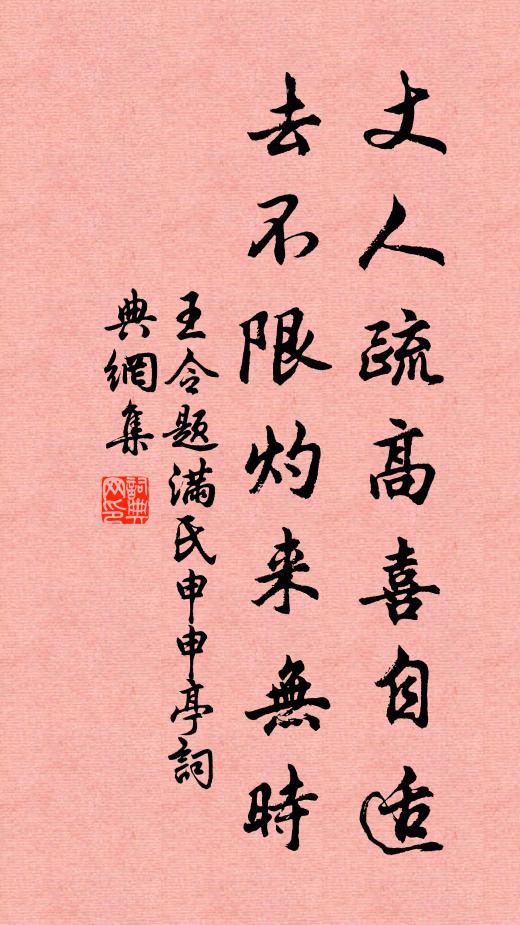 丈人疏高喜自适
去不限灼来無時
王令题满氏申申亭詞
典網集
詞典網印